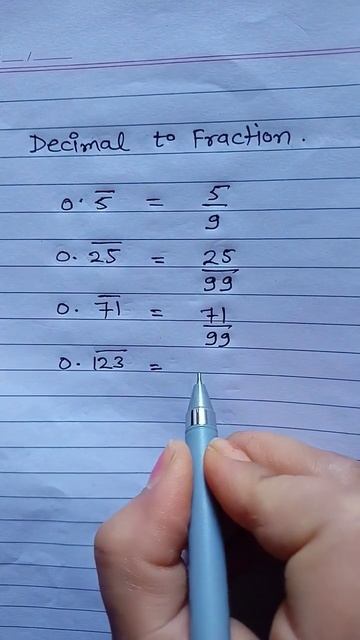 Decimal to Fraction.
0.5̅ = 5/9
0.2̅5̅ = 25/99
0.7̅1̅ = 71/99
0.1̅2̅3̅ =